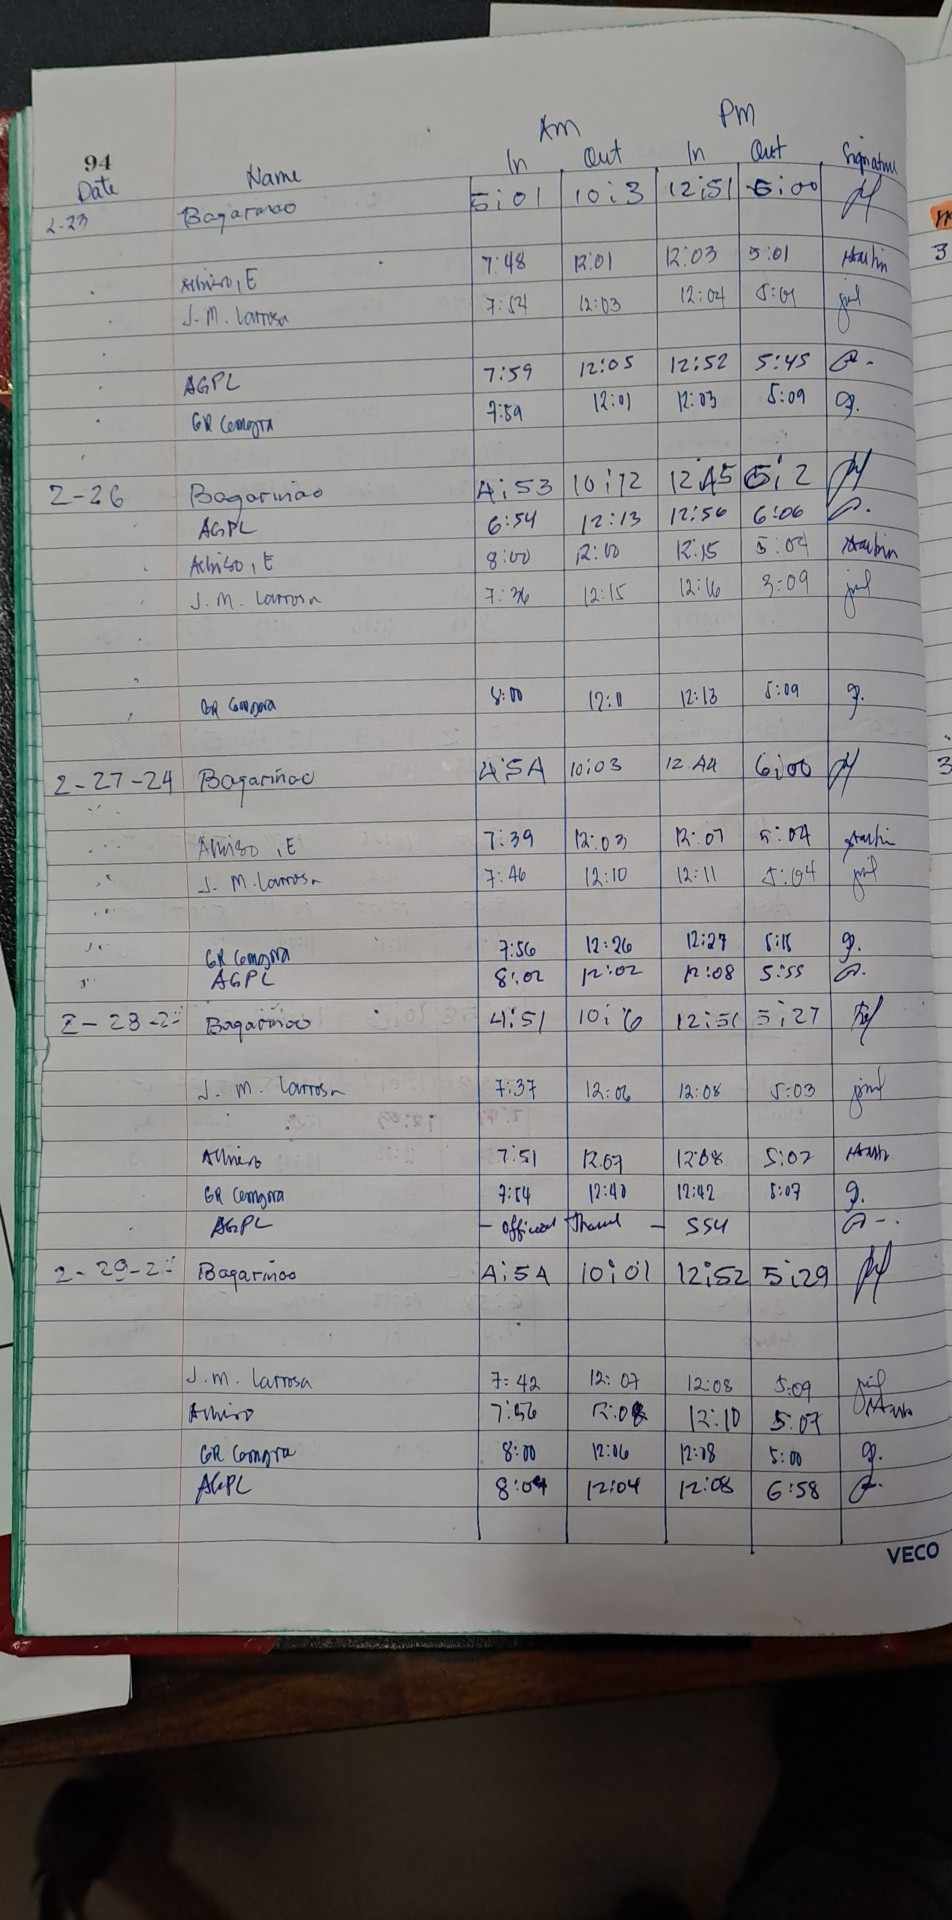 Am PM
94 In Out In Out Signature
Date Name
2-23 Bagarinao 5:01 10:3 12:51 5:00
Albiso, E 7:48 12:01 12:03 5:01
J. M. Larrosa 7:54 12:03 12:04 5:01
AGPL 7:59 12:05 12:52 5:45
GR Cemgra 7:59 12:01 12:03 5:09 g.
2-26 Bagarinao 4:53 10:12 12:45 5:2
AGPL 6:54 12:13 12:56 6:06
Albiso, E 8:00 12:00 12:15 5:04
J. M. Larrosa 7:36 12:15 12:16 3:09
GR Cemgra 8:00 12:11 12:13 5:09 g.
2-27-24 Bagarinao 4:54 10:03 12:44 6:00
Albiso, E 7:39 12:03 12:07 5:04
J. M. Larrosa 7:46 12:10 12:11 5:04
GR Cemgra 7:56 12:26 12:27 5:15 g.
AGPL 8:02 12:02 12:08 5:55
2-28-2 Bagarinao 4:51 10:6 12:51 5:27
J. M. Larrosa 7:37 12:06 12:08 5:03
Albiso 7:51 12:07 12:08 5:07
GR Cemgra 7:54 12:40 12:42 5:07 g.
AGPL - Official Travel - SSU
2-29-2 Bagarinao 4:54 10:01 12:52 5:29
J. M. Larrosa 7:42 12:07 12:08 5:09
Albiso 7:56 12:08 12:10 5:07
GR Cemgra 8:00 12:06 12:08 5:00 g.
AGPL 8:04 12:04 12:08 6:58
VECO